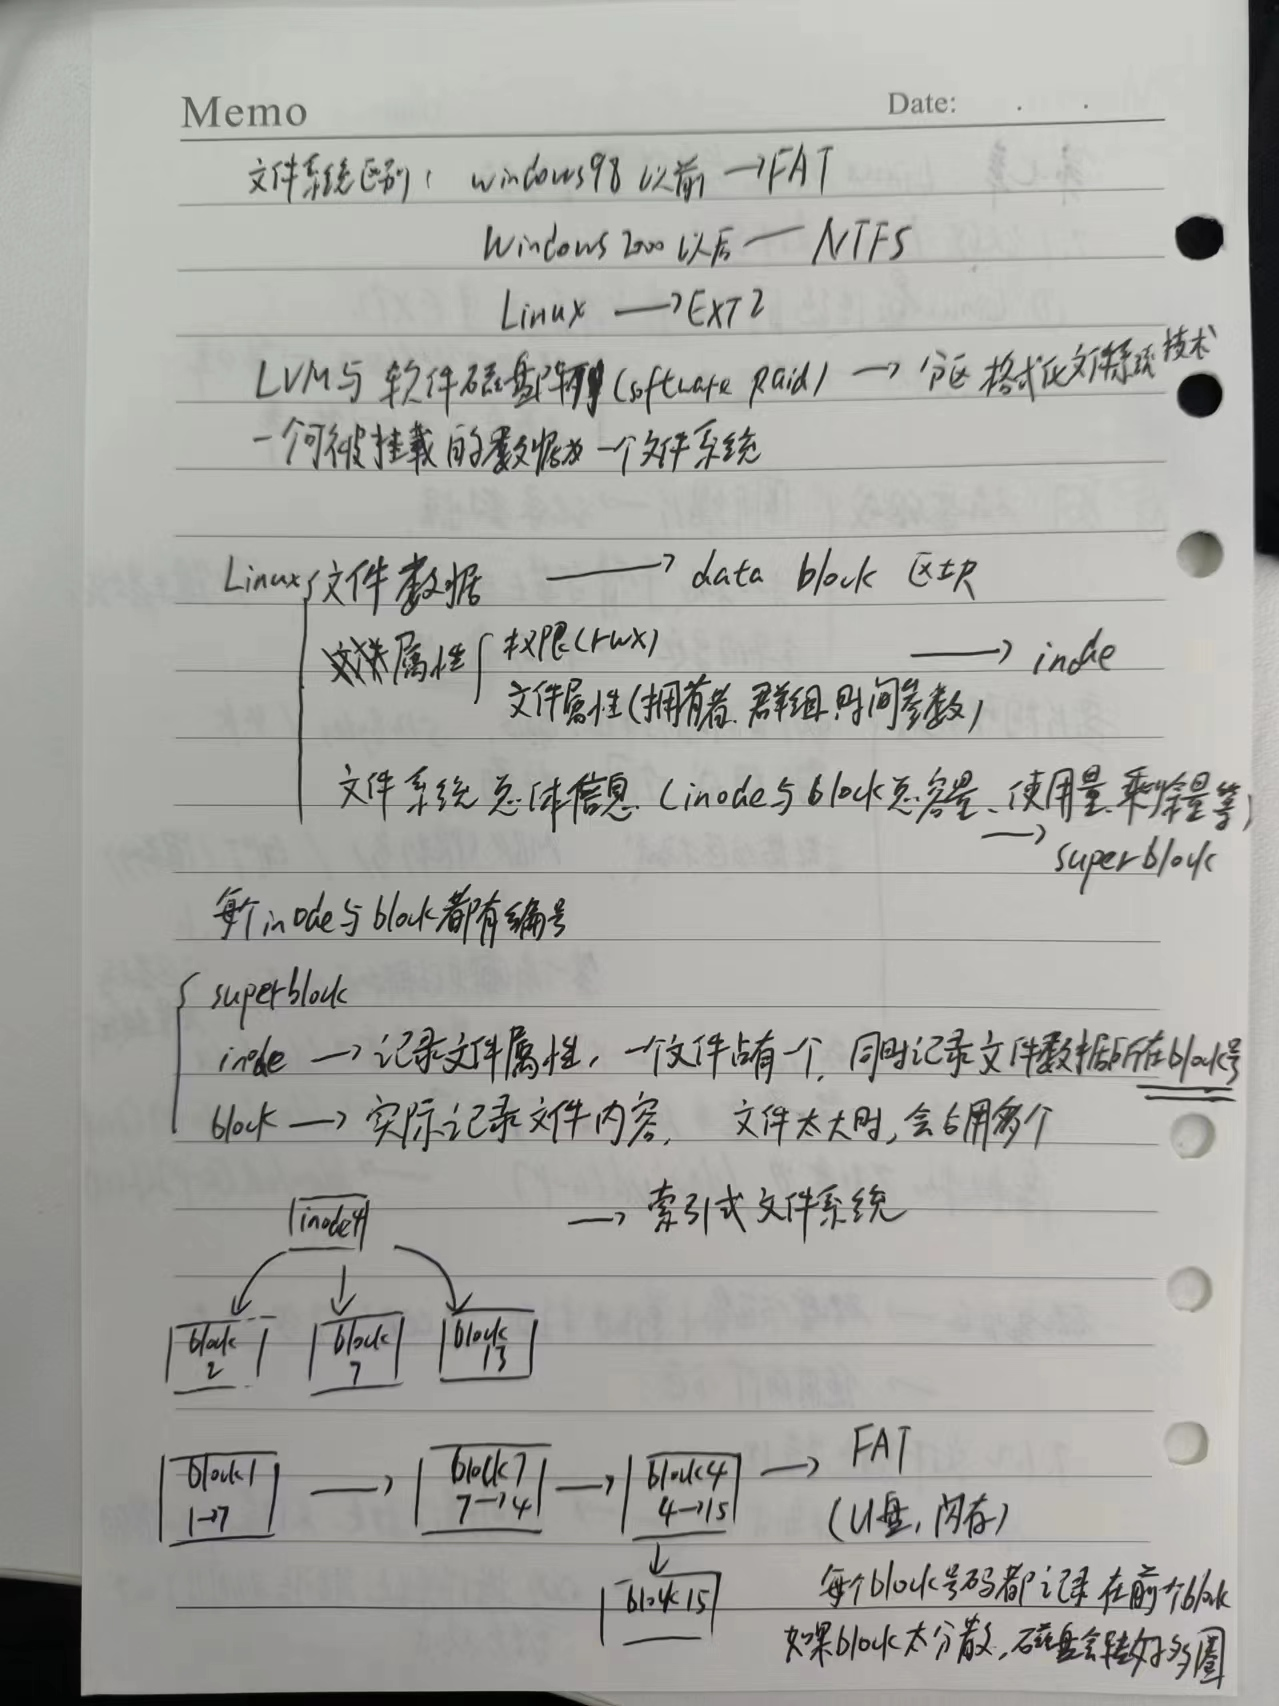 Memo
Date: . .
文件系统区别: windows98 以前 →FAT
Windows 2000 以后 — NTFS
Linux →EXT2
LVM与 软件磁盘阵列 (software Raid) → 分区 格式化文件系统 技术
一个可被挂载的数据为一个文件系统
Linux 文件数据 → data block 区块
属性 权限(rwx) → inode
文件属性(拥有者、群组、时间参数)
文件系统总体信息 (inode与block总容量、使用量、剩余量等)
→ superblock
每个inode与block都有编号
superblock
inode → 记录文件属性, 一个文件占有一个, 同时记录文件数据所在block号
block → 实际记录文件内容, 文件太大时, 会占用多个
inode4 → 索引式文件系统
block 2 block 7 block 13
block1 → block7 → block4 → FAT
1→7 7→4 4→15 (U盘, 闪存)
block15 每个block号码都记录在前个block
如果block太分散, 磁盘会转好多圈